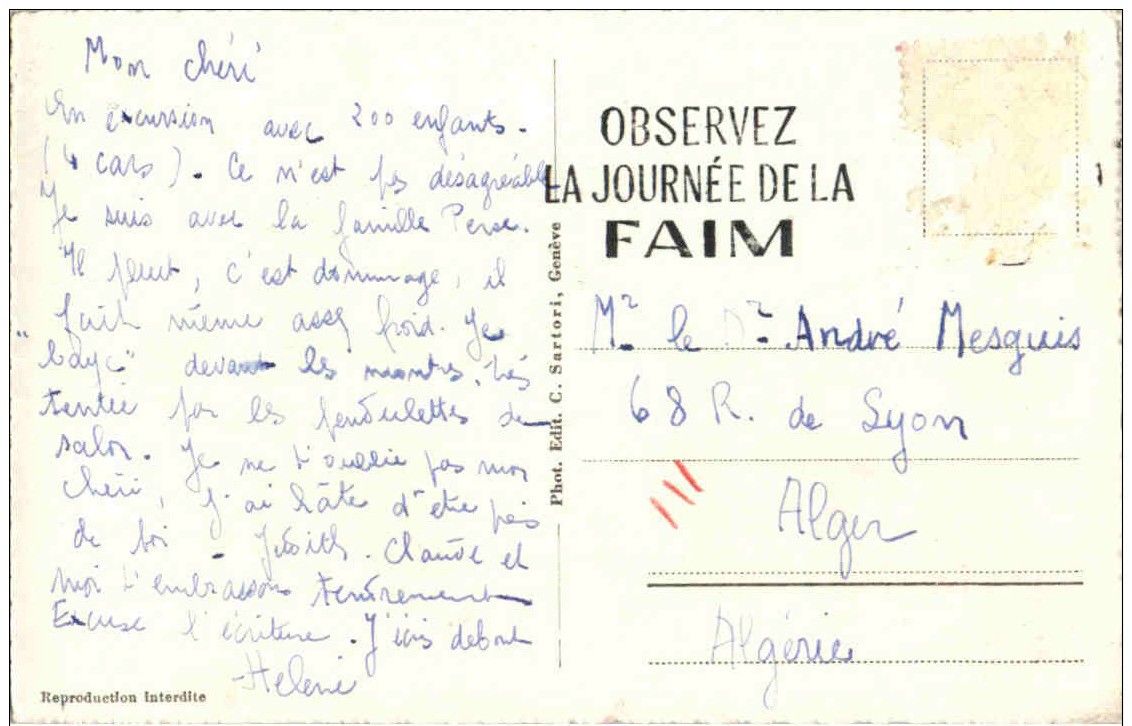 Mon chéri
En excursion avec 200 enfants.
(4 cars). Ce n'est pas désagréable
Je suis avec la famille Perse.
Il pleut, c'est dommage, il
fait même assez froid. Je
"baye" devant les montres. très
tentée par les pendulettes de
salon. Je ne t'oublie pas mon
chéri, j'ai hâte d'être près
de toi - Judith. Claude et
moi t'embrassons tendrement
Excuse l'écriture. J'écris debout
Helene
Reproduction interdite
Phot. Edit. C. Sartori, Genève
OBSERVEZ
LA JOURNÉE DE LA
FAIM
Mr le Dr André Mesguis
68 R. de Lyon
Alger
Algérie